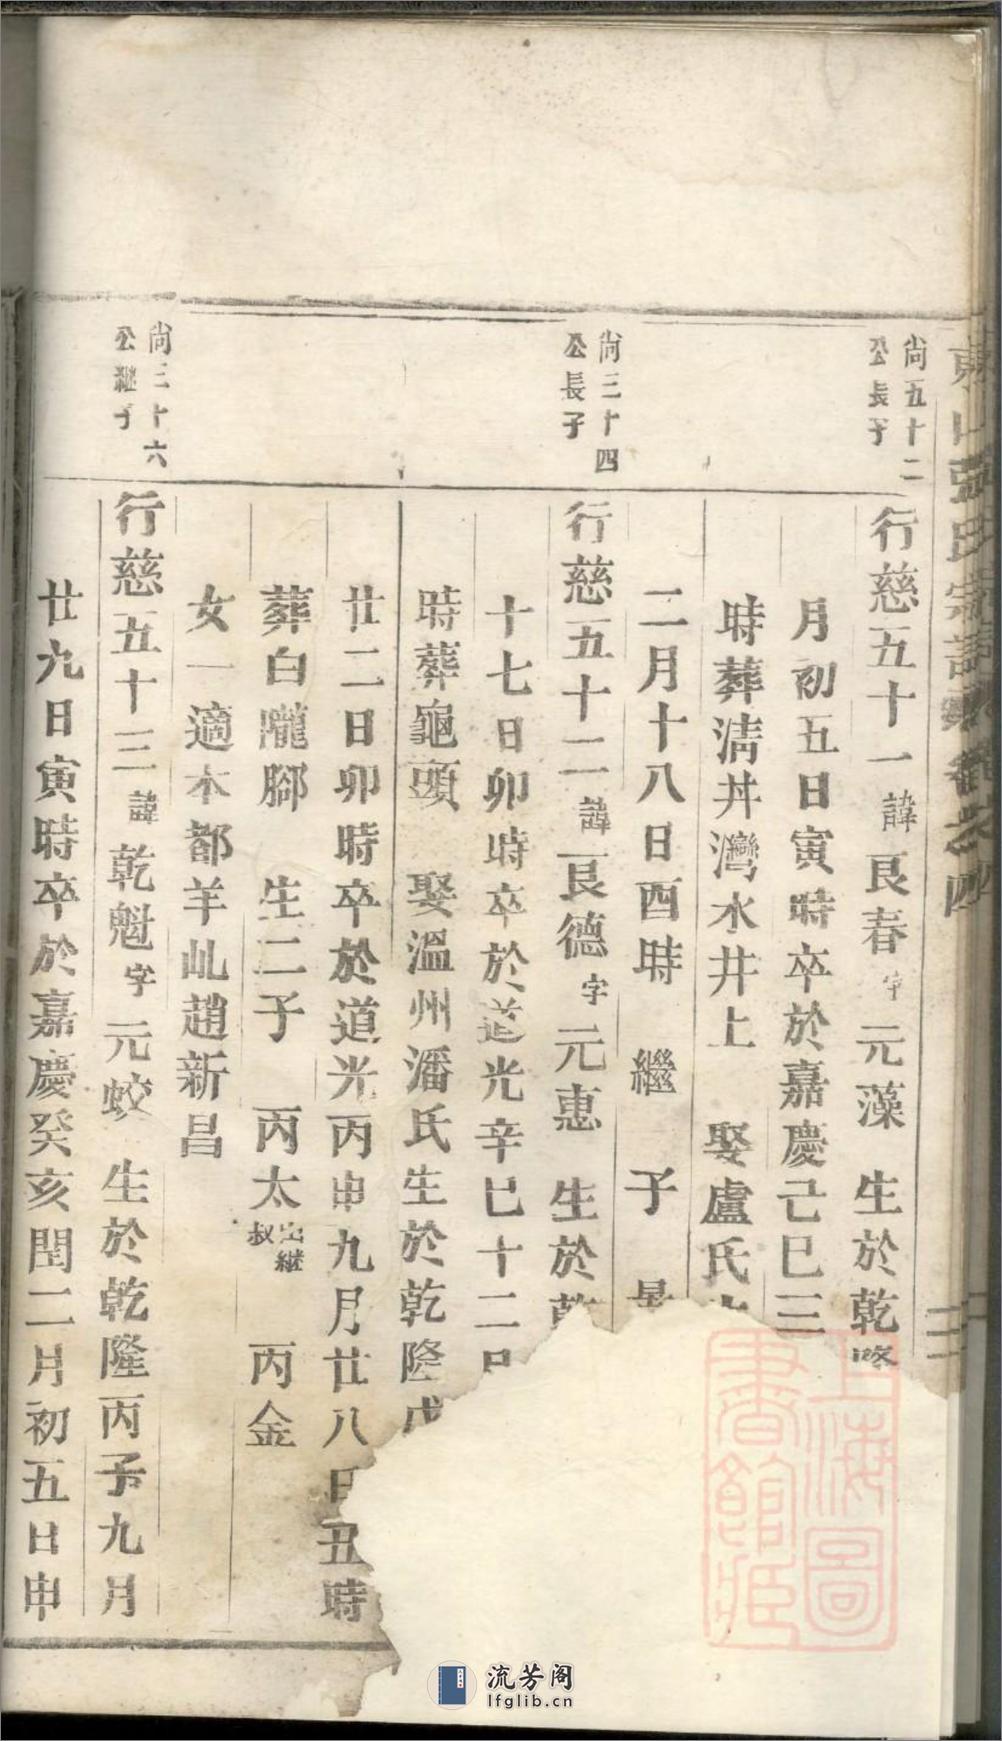 東山張氏宗譜卷之四
尚五十二
公長子
行慈五十一諱良春字元藻 生於乾隆
月初五日寅時卒於嘉慶己巳三
時葬淸井灣水井上 娶盧氏
二月十八日酉時 繼子
尚三十四
公長子
行慈五十二諱良德字元惠 生於乾
十七日卯時卒於道光辛巳十二月
時葬龜頭 娶溫州潘氏生於乾隆戊
廿二日卯時卒於道光丙申九月廿八日丑時
葬白隴腳 生二子 丙太出繼叔 丙金
女一適本都羊乢趙新昌
尚三十六
公繼子
行慈五十三諱乾魁字元蛟 生於乾隆丙子九月
廿九日寅時卒於嘉慶癸亥閏二月初五日申
上海圖
書館藏
流芳阁
lfglib.cn